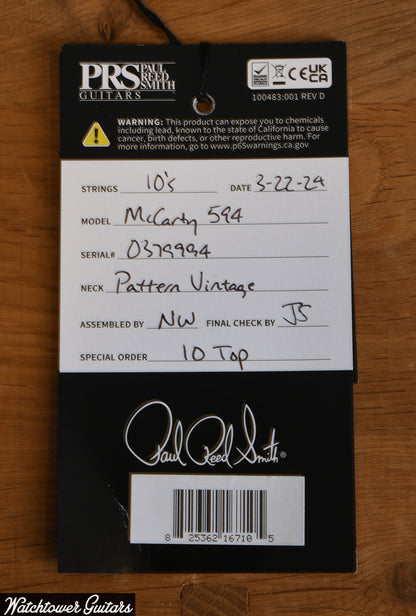 PRS PAUL REED SMITH
GUITARS
UK CA
100483:001 REV D
WARNING: This product can expose you to chemicals
including lead, known to the state of California to cause
cancer, birth defects, or other reproductive harm. For
more information, go to www.p65warnings.ca.gov
STRINGS 10's DATE 3-22-24
MODEL McCarty 594
SERIAL# 0379994
NECK Pattern Vintage
ASSEMBLED BY NW FINAL CHECK BY JS
SPECIAL ORDER 10 Top
Paul Reed Smith®
8 25362 16710 5
Watchtower Guitars